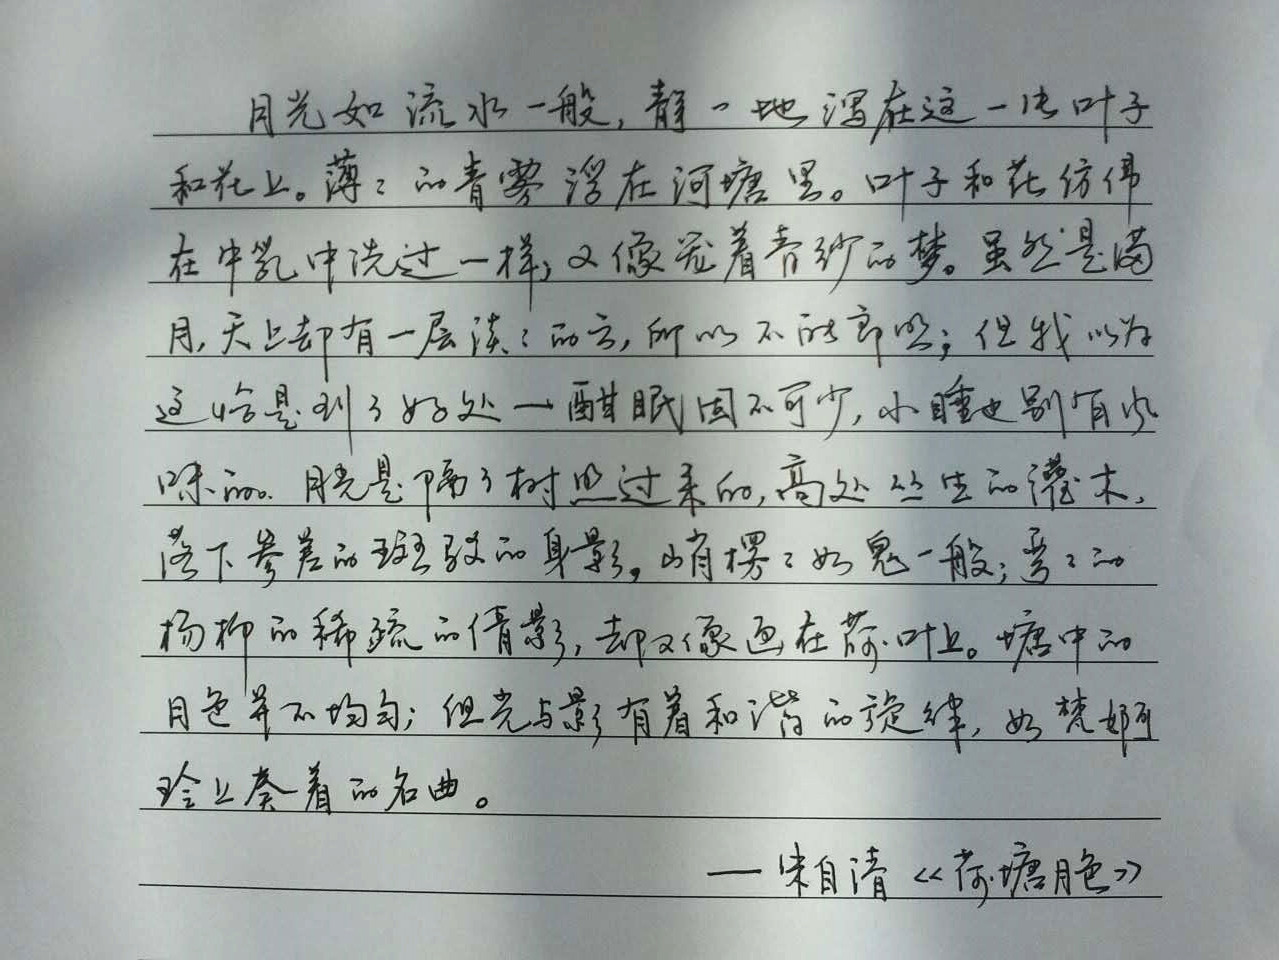 月光如流水一般，静丶地泻在这一片叶子
和花上。薄々的青雾浮在河塘里。叶子和花仿佛
在牛乳中洗过一样，又像笼着青纱的梦。虽然是满
月，天上却有一层淡々的云，所以不能朗照；但我以为
这恰是到了好处一酣眠固不可少，小睡也别有风
味的。月光是隔了树照过来的，高处丛生的灌木，
落下参差的斑驳的身影，峭楞々如鬼一般；弯々的
杨柳的稀疏的倩影，却又像画在荷叶上。塘中的
月色并不均匀；但光与影有着和谐的旋律，如梵婀
玲上奏着的名曲。
——朱自清《荷塘月色》